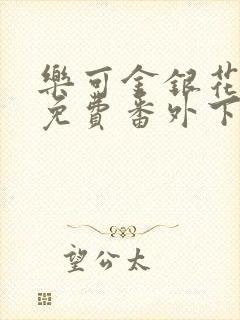 樂可金銀花
免費番外下
望公太